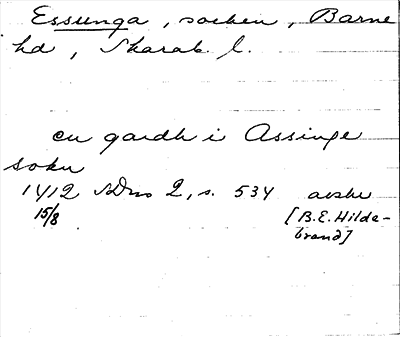 Essunga, socken, Barne
hd, Skarab. l.
en gardh i Assinge
sokn
1412 SDns 2, s. 534 avskr
15/8 [B.E. Hilde-
brand]